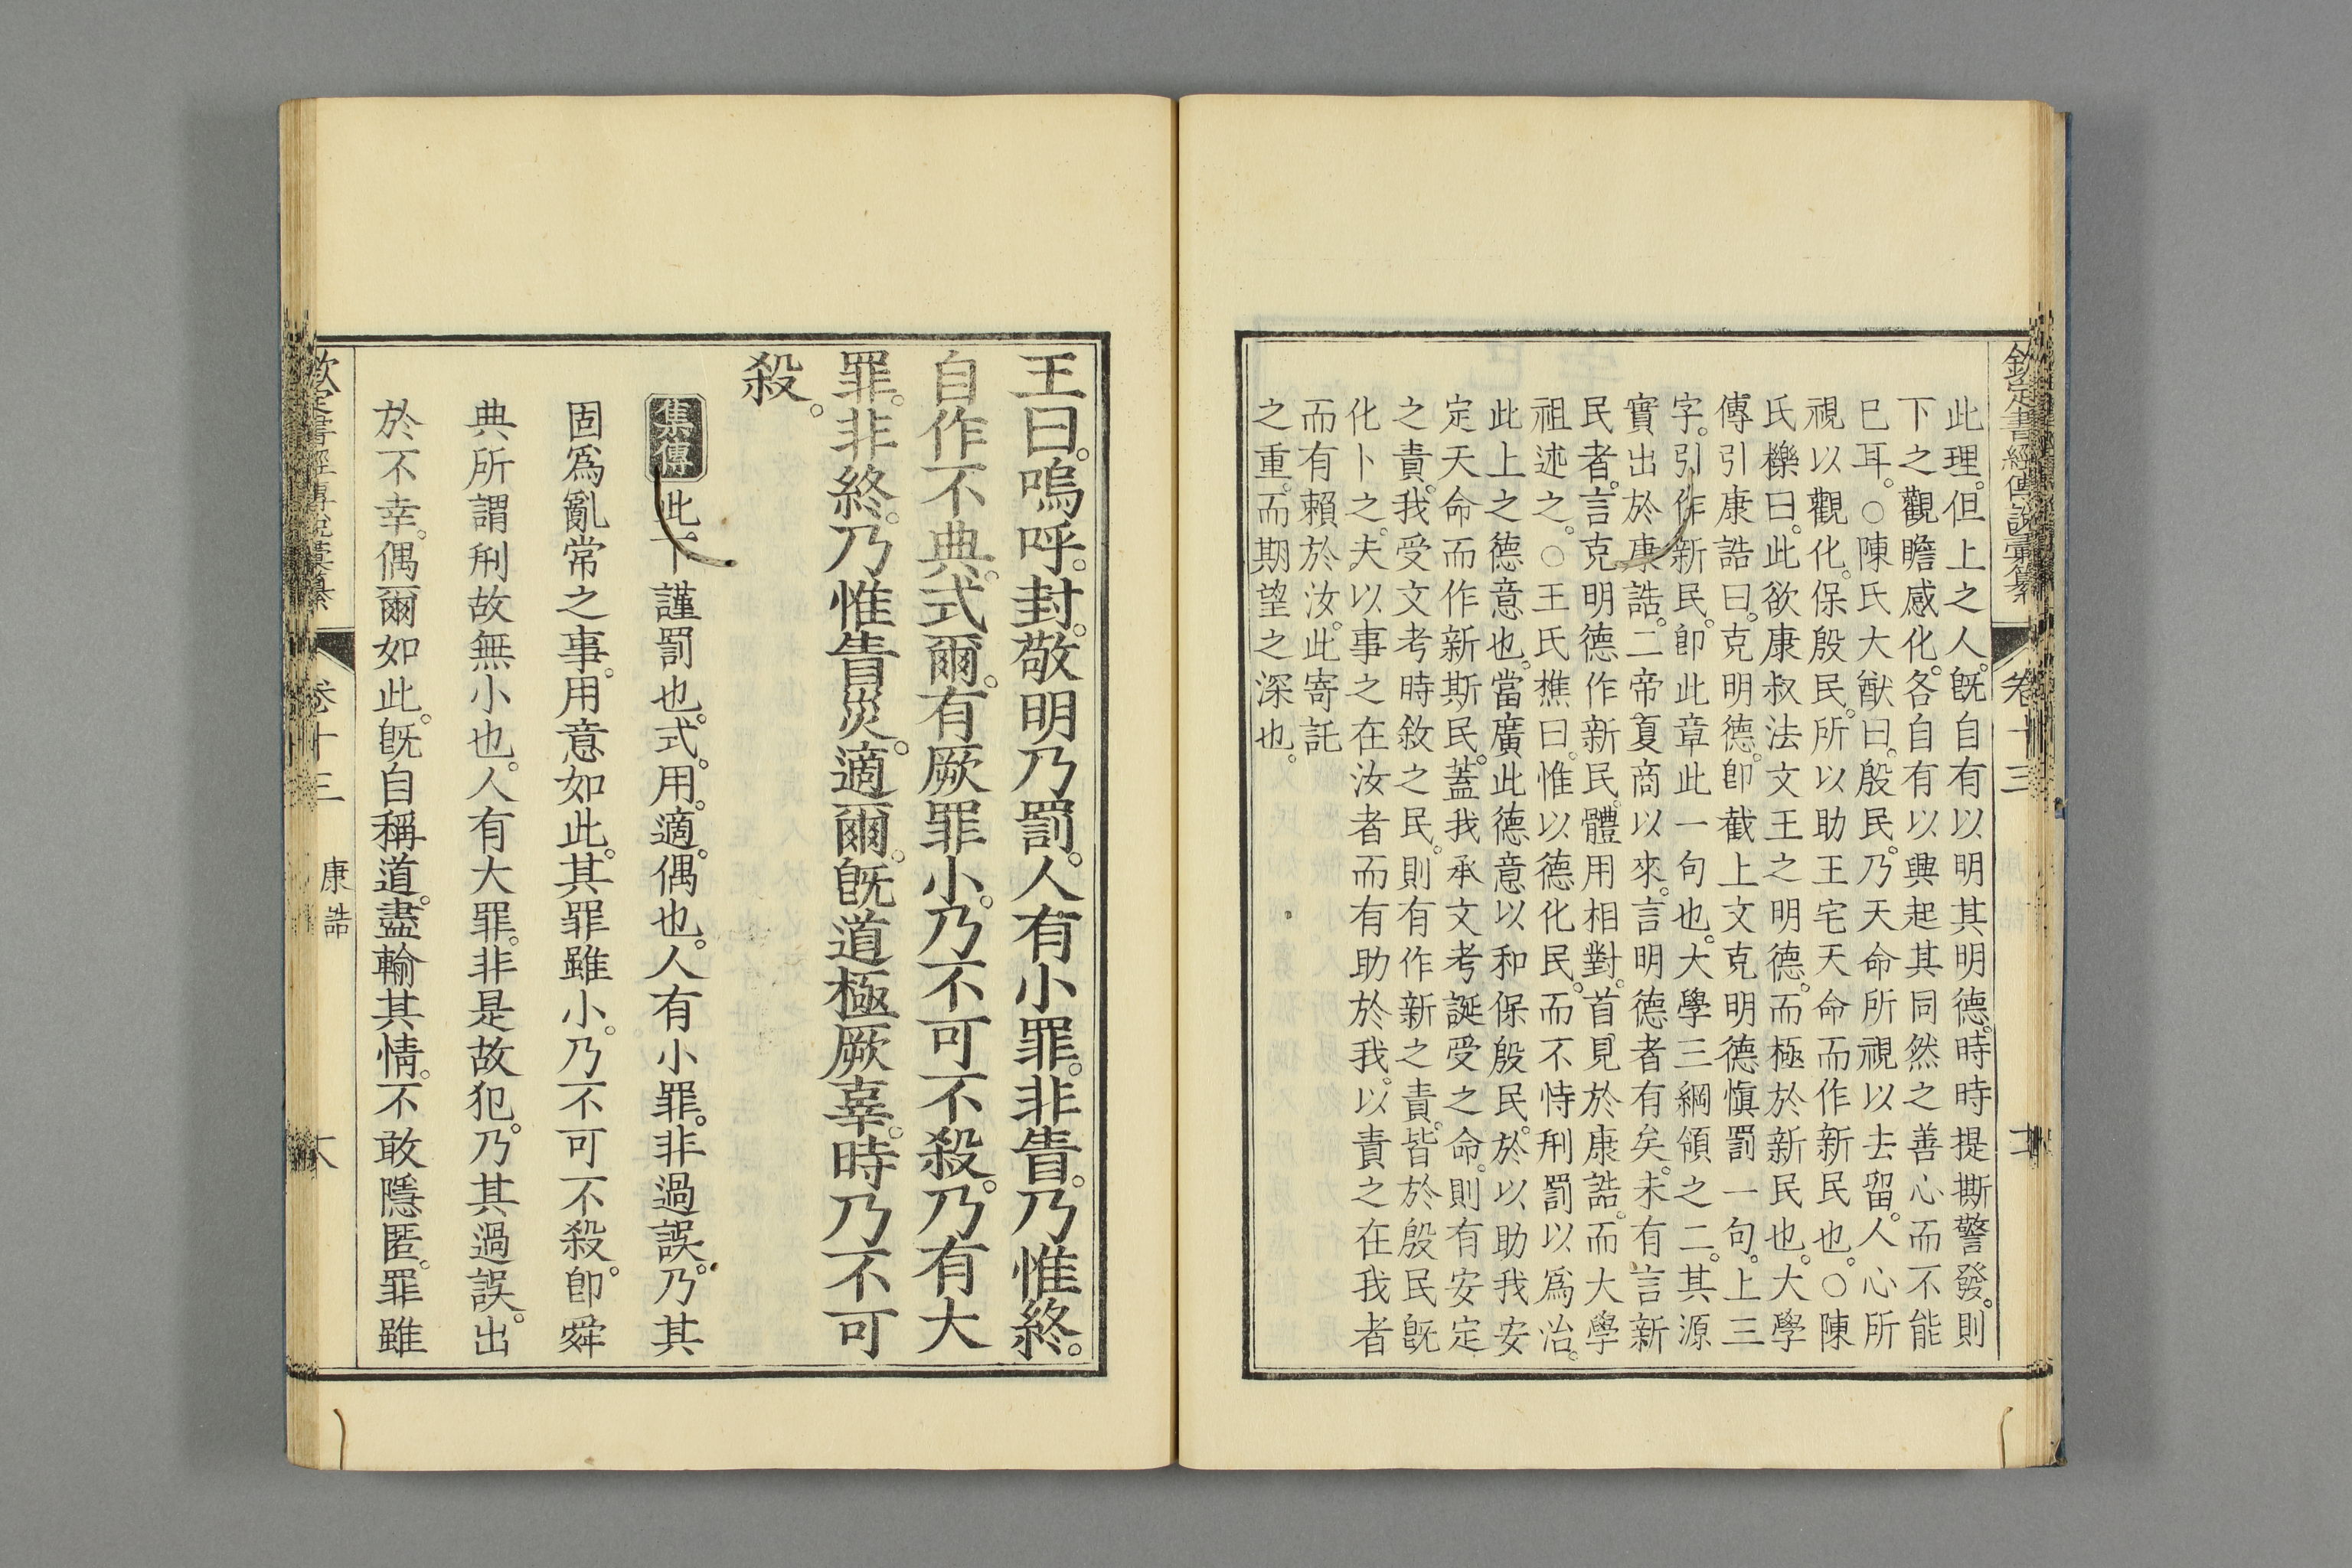 欽定書經傳說彙纂 卷十三
此理。但上之人。旣自有以明其明德。時時提撕警發。則
下之觀瞻感化。各自有以興起其同然之善心而不能
已耳。○陳氏大猷曰。殷民。乃天命所視以去留。人心所
視以觀化。保殷民。所以助王宅天命而作新民也。○陳
氏櫟曰。此欲康叔法文王之明德。而極於新民也。大學
傳引康誥曰。克明德。卽截上文克明德愼罰一句。上三
字。引作新民。卽此章此一句也。大學三綱領之二。其源
實出於康誥。二帝夏商以來。言明德者有矣。未有言新
民者。言克明德作新民。體用相對。首見於康誥。而大學
祖述之。○王氏樵曰。惟以德化民。而不恃刑罰以爲治。
此上之德意也。當廣此德意以和保殷民。於以助我安
定天命而作新斯民。蓋我承文考誕受之命。則有安定
之責。我受文考時敘之民。則有作新之責。皆於殷民旣
化卜之。夫以事之在汝者而有助於我。以責之在我者
而有賴於汝。此寄託
之重。而期望之深也。
王曰。嗚呼。封。敬明乃罰。人有小罪。非眚。乃惟終。
自作不典。式爾。有厥罪小。乃不可不殺。乃有大
罪。非終。乃惟眚烖。適爾。旣道極厥辜。時乃不可
殺。
集傳 此下謹罰也。式。用。適。偶也。人有小罪。非過誤。乃其
固爲亂常之事。用意如此。其罪雖小。乃不可不殺。卽舜
典所謂刑故無小也。人有大罪。非是故犯。乃其過誤。出
於不幸。偶爾如此。旣自稱道。盡輸其情。不敢隱匿。罪雖
欽定書經傳說彙纂 卷十三 康誥